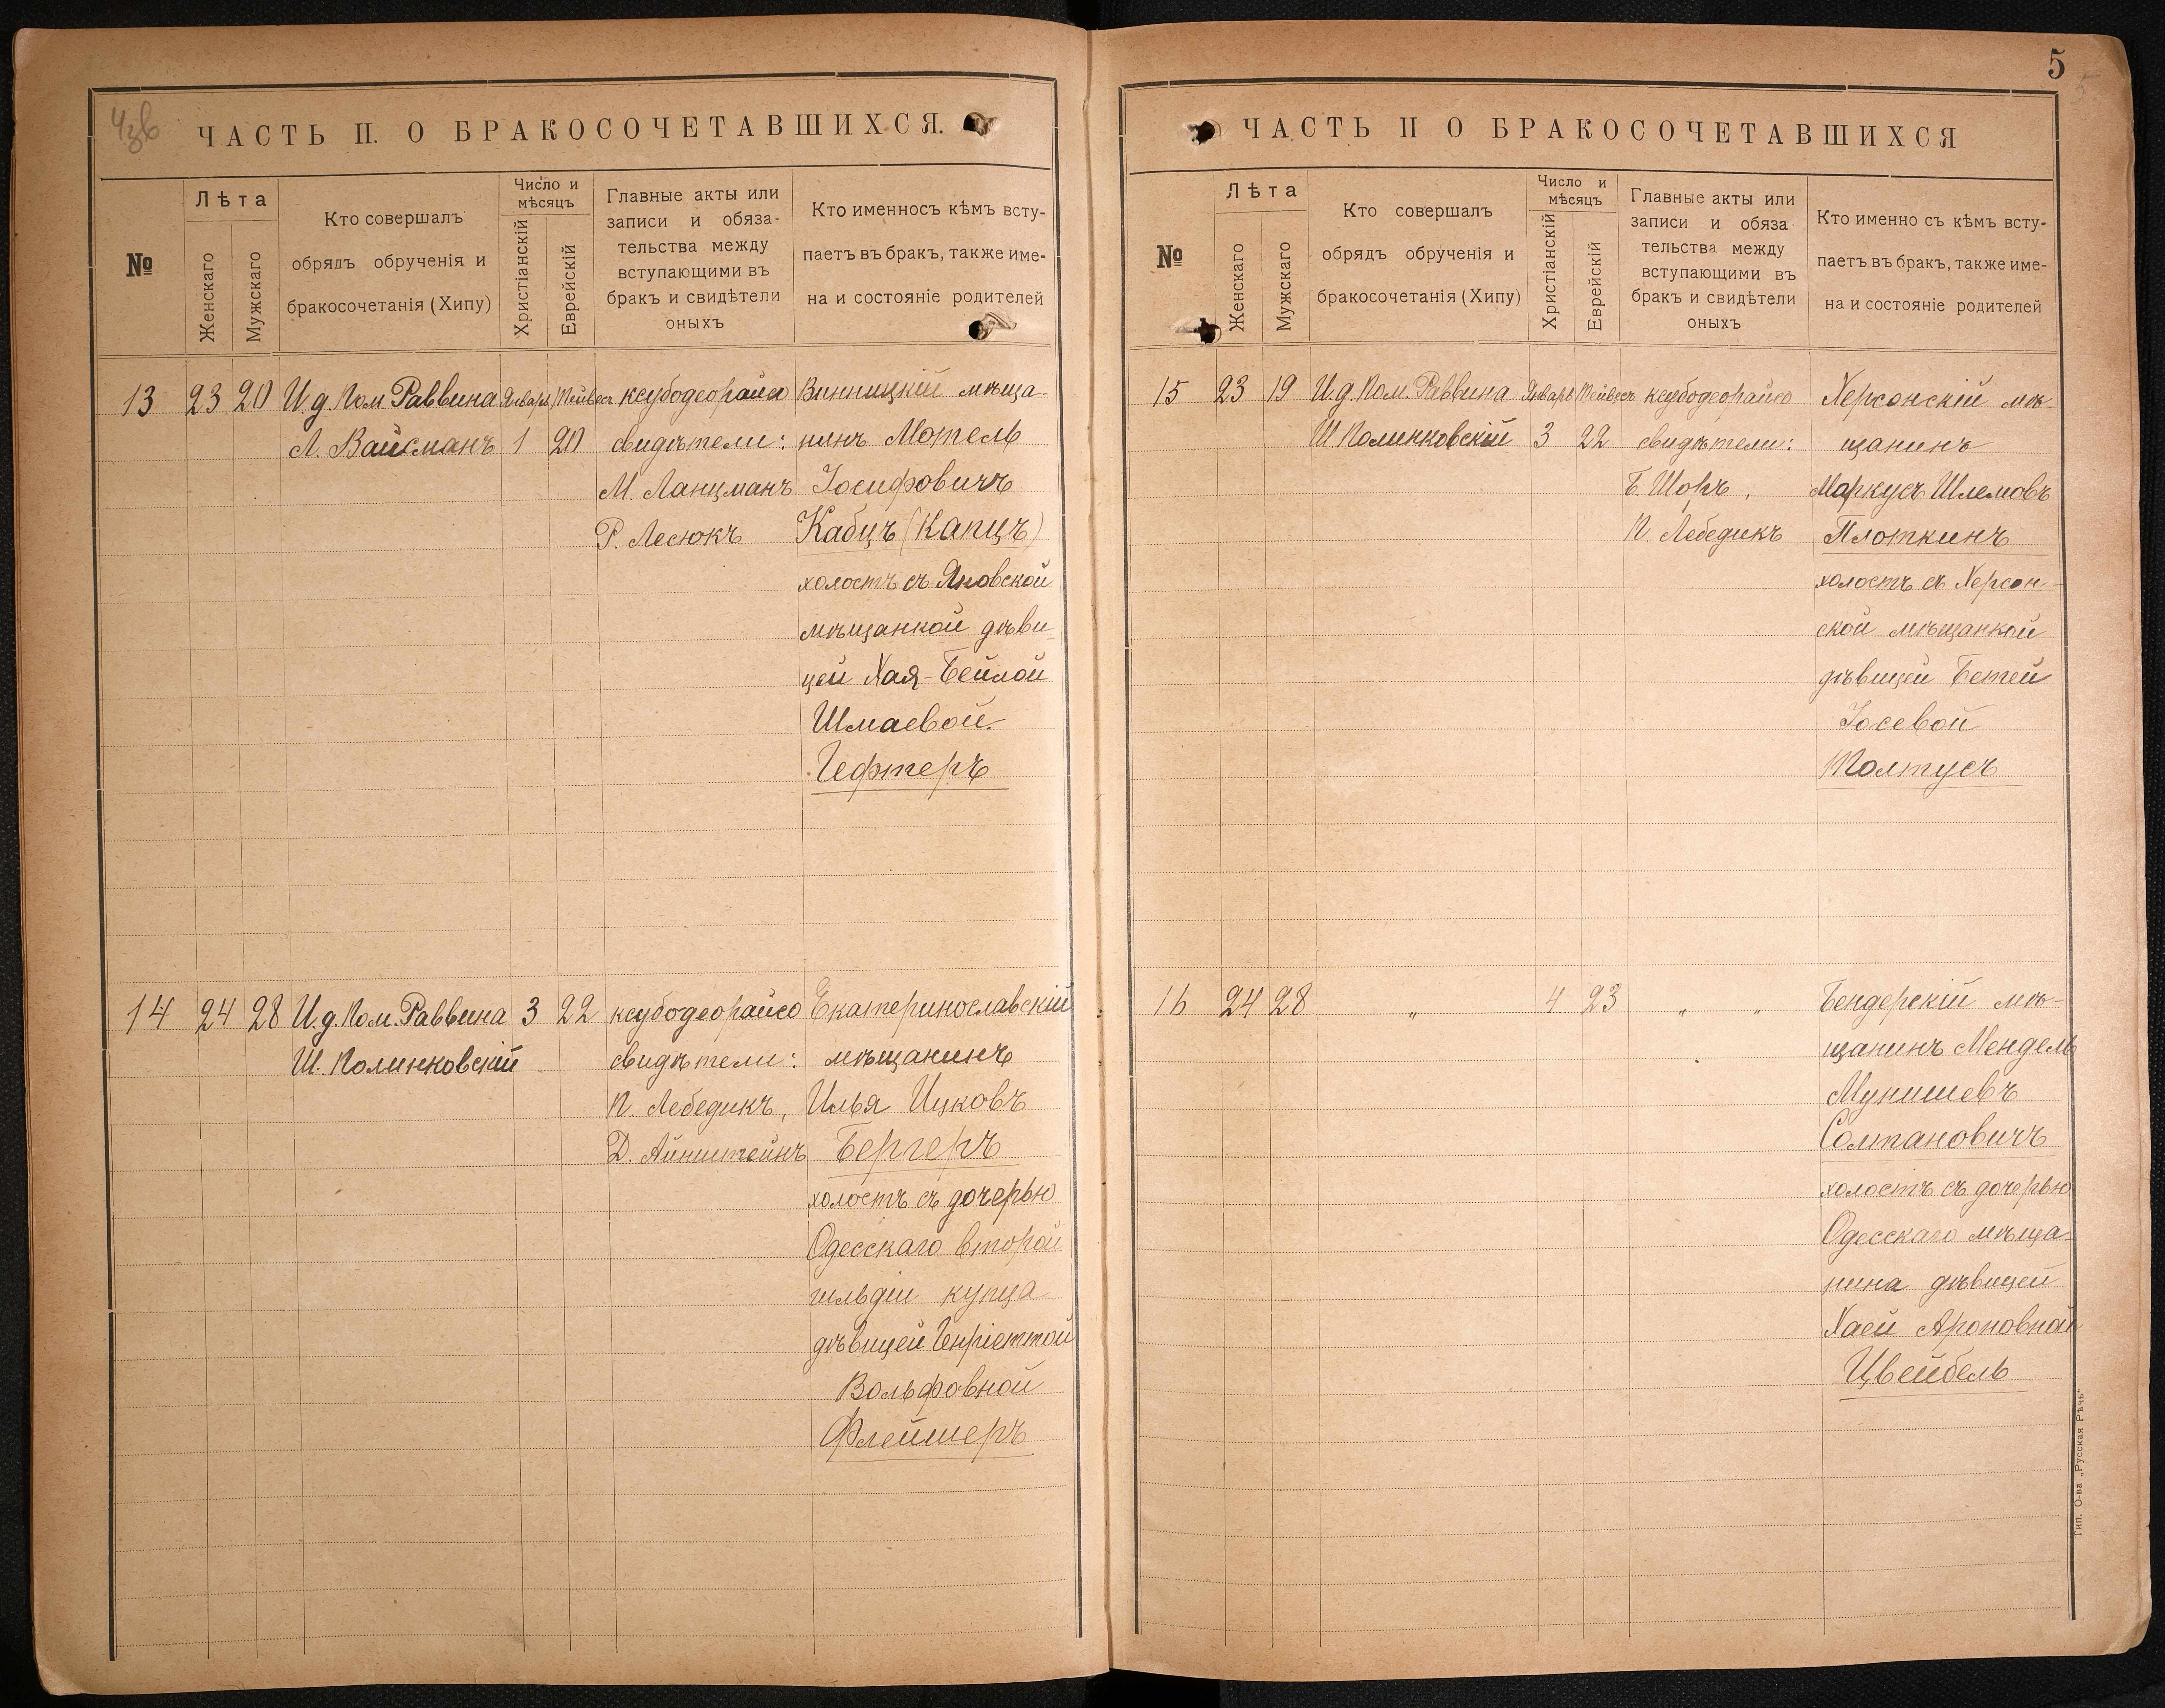 ЧАСТЬ II. О БРАКОСОЧЕТАВШИХСЯ.
№
Лѣта
Женскаго
Мужскаго
Кто совершалъ
обрядъ обрученія и
бракосочетанія (Хипу)
Число и
мѣсяцъ
Христіанскій
Еврейскій
Главные акты или
записи и обяза-
тельства между
вступающими въ
бракъ и свидѣтели
оныхъ
Кто именносъ кѣмъ всту-
паетъ въ бракъ, также име-
на и состояніе родителей
13
23
20
И. д. Пом. Раввина
Л. Вайсманъ
Январь
1
Тейвесъ
20
ксубодеорайсо
свидѣтели:
М. Ланцманъ
Р. Лесюкъ
Винницкій мѣща-
нинъ Мотель
Іосифовичъ
Кабцъ (Капцъ)
холостъ съ Яновской
мѣщанкой дѣви-
цей Хая-Бейлой
Шмаевой
Гефтеръ
14
24
28
И. д. Пом. Раввина
Ш. Полинковскій
3
22
ксубодеорайсо
свидѣтели:
П. Лебедикъ,
Д. Айнштейнъ
Екатеринославскій
мѣщанинъ
Илья Ицковъ
Бергеръ
холостъ съ дочерью
Одесскаго второй
гильдіи купца
дѣвицей Генріеттой
Вольфовной
Флейшеръ
5
ЧАСТЬ II О БРАКОСОЧЕТАВШИХСЯ
№
Лѣта
Женскаго
Мужскаго
Кто совершалъ
обрядъ обрученія и
бракосочетанія (Хипу)
Число и
мѣсяцъ
Христіанскій
Еврейскій
Главные акты или
записи и обяза-
тельства между
вступающими въ
бракъ и свидѣтели
оныхъ
Кто именно съ кѣмъ всту-
паетъ въ бракъ, также име-
на и состояніе родителей
15
23
19
И. д. Пом. Раввина
Ш Полинковскій
Январь
3
Тейвесъ
22
ксубодеорайсо
свидѣтели:
Б. Шоръ,
П. Лебедикъ
Херсонскій мѣ-
щанинъ
Маркусъ Шлемовъ
Плоткинъ
холостъ съ Херсон-
ской мѣщанкой
дѣвицей Бетей
Іосевой
Толтусъ
16
24
28
„
4
23
„ „
Бендерскій мѣ-
щанинъ Мендель
Мунишевъ
Солтановичъ
холостъ съ дочерью
Одесскаго мѣща-
нина дѣвицей
Хаей Ароновной
Цвейбель
Тип. О-ва „Русская Рѣчь“